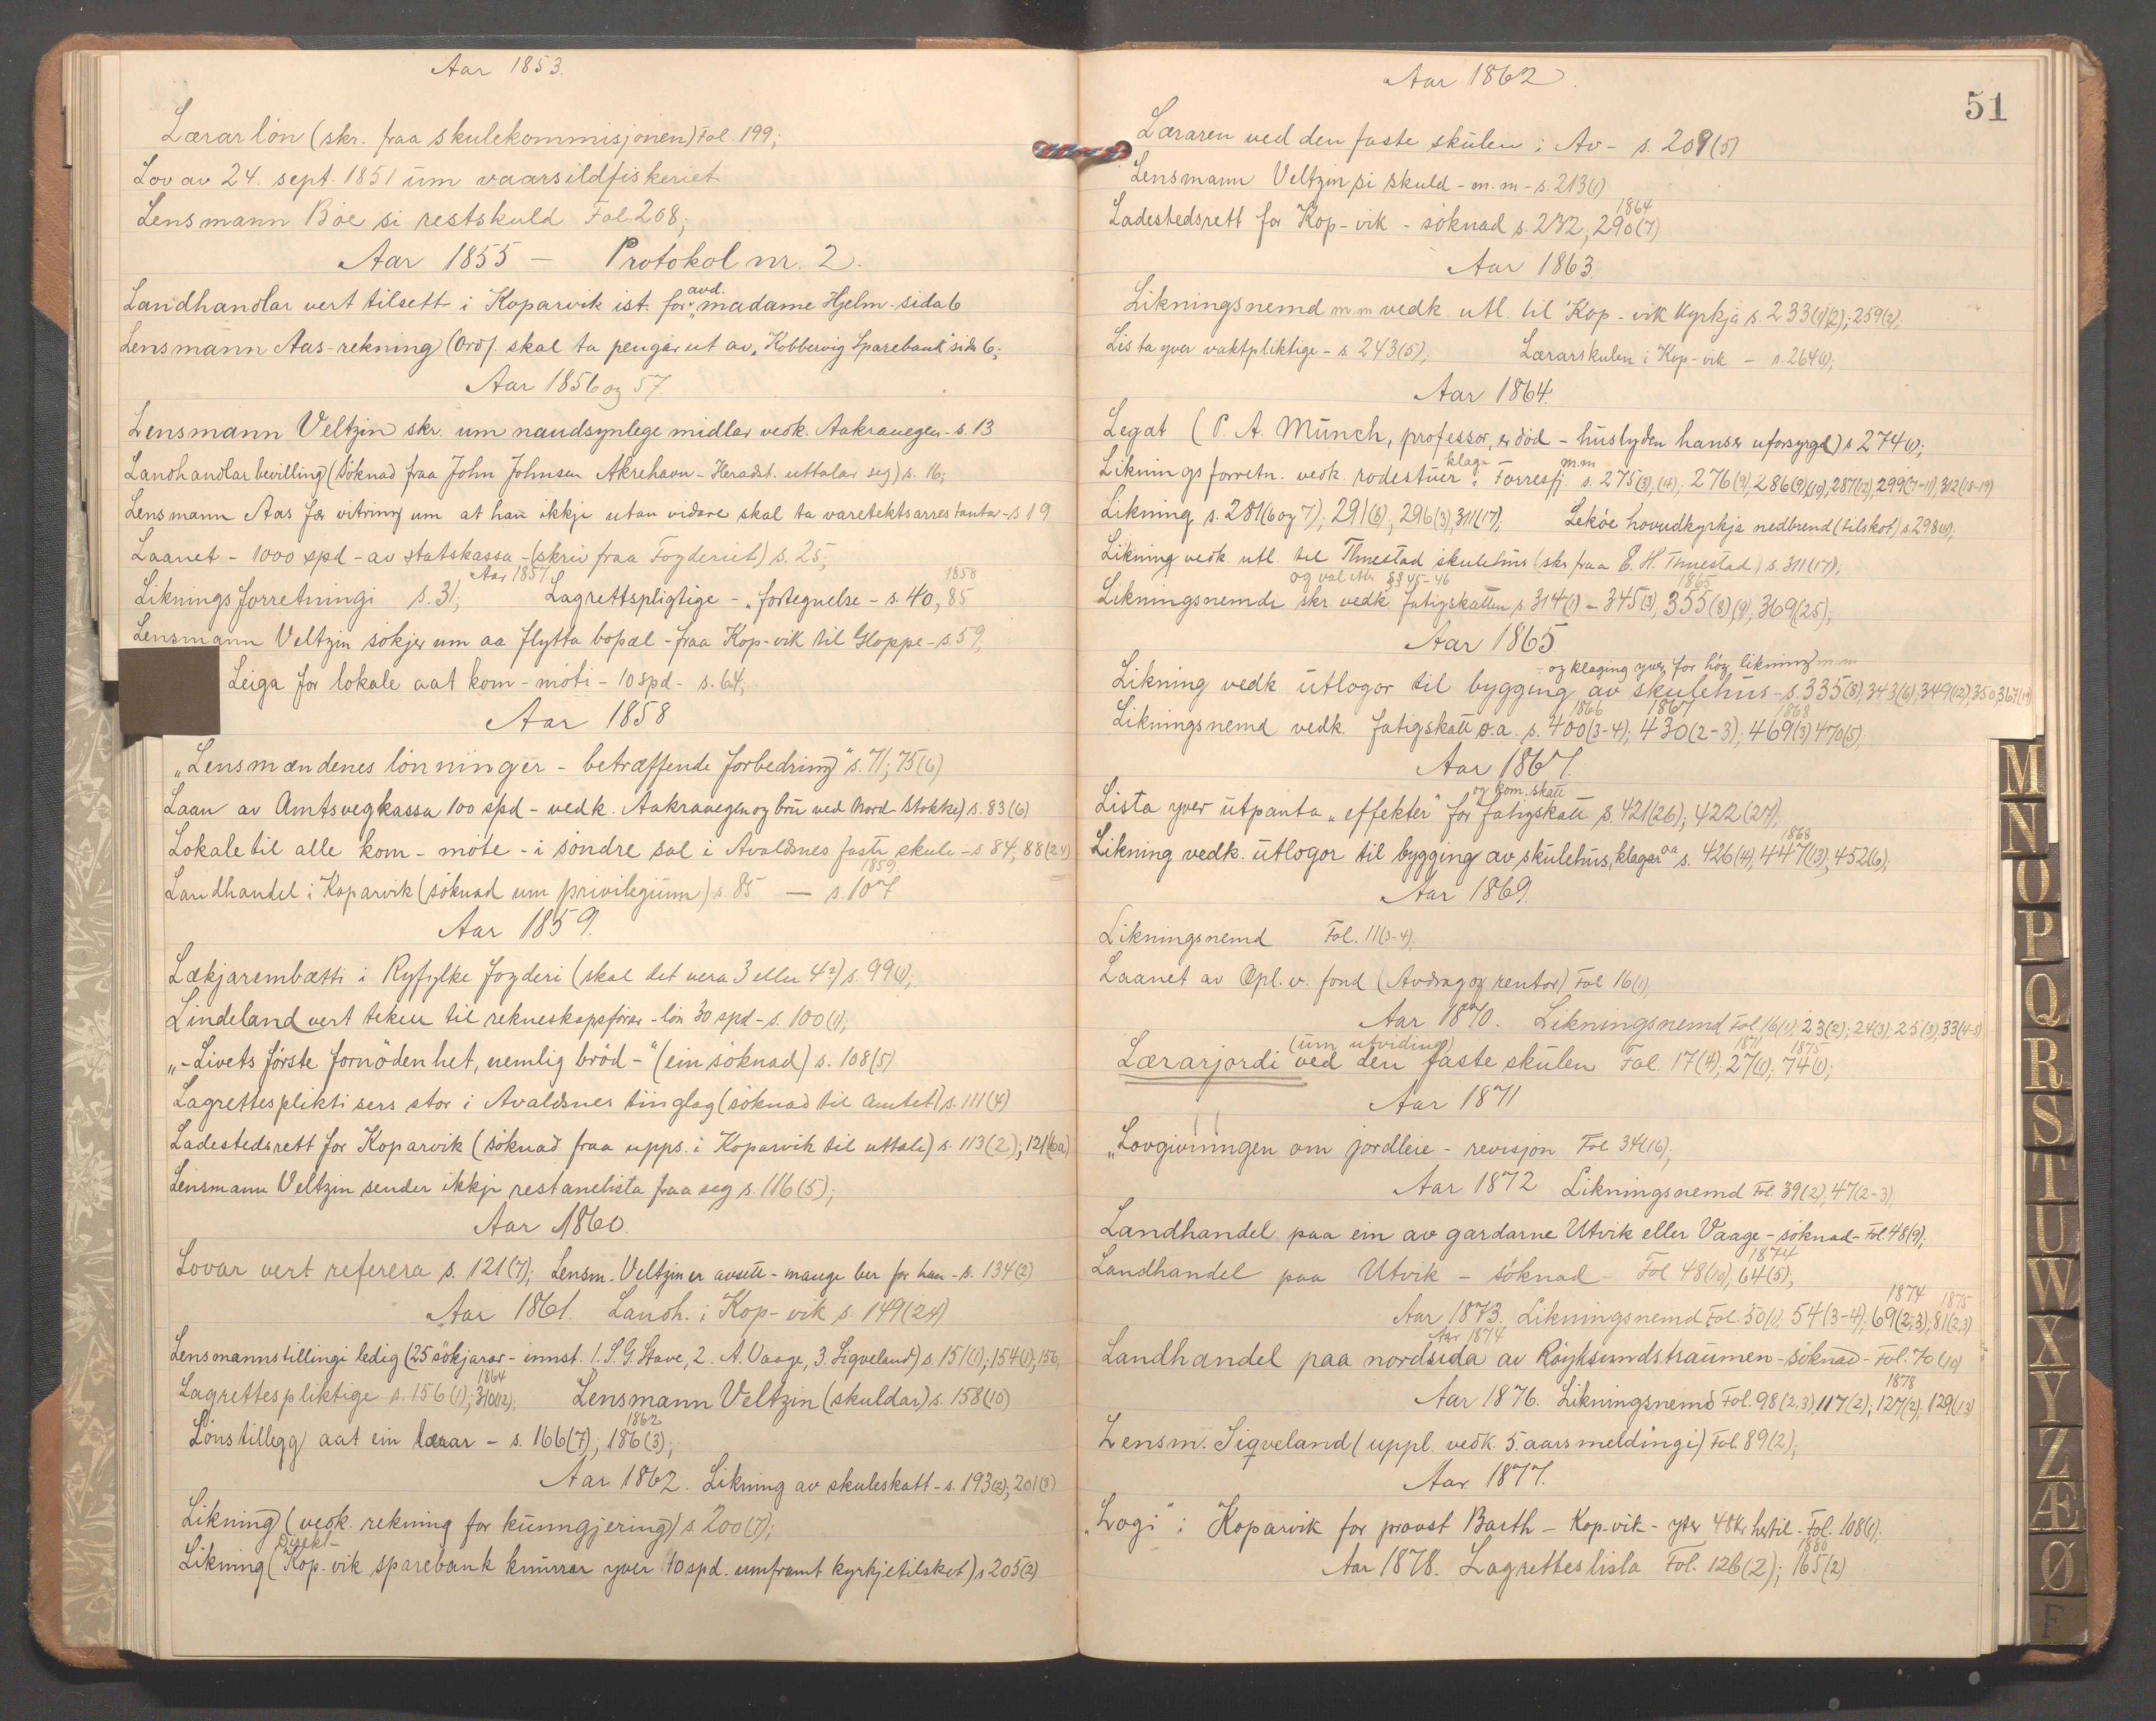 Aar 1853.
Lærarlön (skr. fraa skulekommisjonen) Fol. 199;
Lov av 24. sept. 1851 um vaarsildfiskeriet
Lensmann Böe si restskuld Fol. 208;
Aar 1855 — Protokol nr. 2.
Landhandlar vert tilsett i Koparvik ist. for avd. madame Hjelm - sida 6
Lensmann Aas - rekning (Ordf. skal ta pengar ut av „Kobbervig Sparebank" sida 6;
Aar 1856 og 57
Lensmann Veltzin skr. um naudsynlege midlar vedk. Aakravegen - s. 13
Landhandlarbevilling (söknad fraa John Johnsen Akrehavn - Heradst. uttalar seg) s. 16;
Lensmann Aas fær vitring um at han ikkje utan vidare skal ta varetektsarrestantar - s 19
Laanet - 1000 spd - av statskassa - (skriv fraa Fogderiet) s. 25;
Likningsforretningi Aar 1857 s. 31; Lagrettspligtige - „fortegnelse - s. 40, 1858 85
Lensmann Veltzin sökjer um aa flytta bopæl - fraa Kop-vik til Gloppe - s. 59;
Leiga for lokale aat kom - möti - 10 spd - s. 64;
Aar 1858
„Lensmændenes lönninger - betræffende forbedring" s. 71; 75(6)
Laan av Amtsvegkassa 100 spd - vedk. Aakravegen og bru ved Nord-Stokke) s. 83(6)
Lokale til alle kom - möte - i söndre sal i Avaldsnes faste skule - s 84, 88(24)
Landhandel i Koparvik (söknad um privilegium) s. 85 — 1859 s. 107
Aar 1859.
Lækjarembætti i Ryfylke fogderi (skal det vera 3 eller 4?) s. 99(4);
Lindeland vert teken til rekneskapsförar - lön 30 spd - s. 100(1);
„- Livets förste fornödenhet, nemlig bröd -" (ein söknad) s. 108(5)
Lagrettesplikti sers stor i Avaldsnes tinglag (söknad til Amtet) s. 111(4)
Ladestedsrett for Koparvik (söknad fraa upps. i Koparvik til uttale) s. 113(2); 121(6a)
Lensmann Veltzin sender ikkje restanselista fraa seg s. 116(5);
Aar 1860.
Lovar vert referera s. 121(7); Lensm. Veltzin er avsett - mange ber for han - s. 134(2)
Aar 1861. Landh. i Kop-vik s. 149(24)
Lensmannstillingi ledig (25 sökjarar - innst. 1. S. G. Stave, 2. A. Vaage, 3. Sigveland) s. 151(1); 154(1); 156,
Lagrettespliktige s. 156(1); 1864 310(12); Lensmann Veltzin (skuldar) s. 158(10)
Lönstillegg aat ein lærar - s. 166(7); 1862 186(3);
Aar 1862. Likning av skuleskatt - s. 193(2); 201(3)
Likning (vedk. rekning for kunngjering) s 200(7);
Likning (Kop-vik sparebank knurrar yver 10 spd. umframt kyrkjetilskot) s 205(2)
Aar 1862.
51
Læraren ved den faste skulen i Av - s. 209(5)
Lensmann Veltzin si skuld - m. m - s. 213(1)
Ladestedsrett for Kop-vik - söknad s. 232, 1864 290(7)
Aar 1863.
Likningsnemd m.m vedk. utl. til Kop-vik kyrkja s. 233(1)(2); 259(2);
Lista yver vaktpliktige - s. 243(5); Lærarskulen i Kop-vik — s. 264(1);
Aar 1864.
Legat (P. A. Münch, professor, er död - huslyden hansr uforsyrgd) s 274(1);
Likningsforretn. vedk. rodestuer: klaga Forresfj. m.m s. 275(3),(4); 276(9), 286(9)(10), 287(12), 299(7-11), 312(18-19)
Likning s. 281(6 og 7); 291(8), 296(3), 311(17); Leköe hovudkyrkja nedbrend (tilskot) s 298(4);
Likning vedk. utl. til Thuestad skulehus (skr fraa E. H. Thuestad) s. 311(17);
og val etter §§ 45-46
Likningsnemdi skr vedk. fatigskatten s. 314(1) - 345(3), 1865 355(8)(9), 369(25);
Aar 1865
- og klaging yver for hög likning m m
Likning vedk utlogor til bygging av skulehus - s. 335(8), 343(6), 349(12), 350, 367(19)
Likningsnemd vedk. fatigskatt o.a. s. 1866 400(3-4); 1867 430(2-3); 1868 469(3) 470(5);
Aar 1867.
Lista yver utpanta „effekter" for fatigskatt og kom. skatt s. 421(26); 422(27);
Likning vedk. utlogor til bygging av skulehus, klagar oa s. 426(4), 1868 447(13), 452(6);
Aar 1869.
Likningsnemd Fol. 11(3-4);
Laanet av Opl. v. fond (Avdrag og rentor) Fol 16(1);
Aar 1870. Likningsnemd Fol 16(1), 23(2); 24(3); 25(3), 33(4-5)
Lærarjordi (um utviding) ved den faste skulen Fol. 17(4); 1871 27(1); 1875 74(1);
Aar 1871
„Lovgivningen om jordleie - revisjon Fol 34(16);
Aar 1872 Likningsnemd Fol. 39(2), 47(2-3);
Landhandel paa ein av gardarne Utvik eller Vaage - söknad - Fol 48(9);
Landhandel paa Utvik - söknad - Fol 48(10), 1874 64(5);
Aar 1873. Likningsnemd Fol. 50(1), 54(3-4); 1874 69(2,3); 1875 81(2,3)
Aar 1874
Landhandel paa nordsida av Röyksundstraumen - söknad - Fol. 70(10)
Aar 1876. Likningsnemd Fol. 98(2,3), 117(2); 1878 127(2); 129(13)
Lensm. Sigveland (uppl. vedk. 5. aarsmeldingi) Fol. 89(2);
Aar 1877.
„Logi" i Koparvik for provst Barth - Kop-vik - yter 48 kr hertil - Fol. 108(1);
Aar 1878. Lagretteslista Fol. 126(2); 1880 165(2)
M
N
O
P
Q
R
S
T
U
W
X
Y
Z
Æ
Ø
F